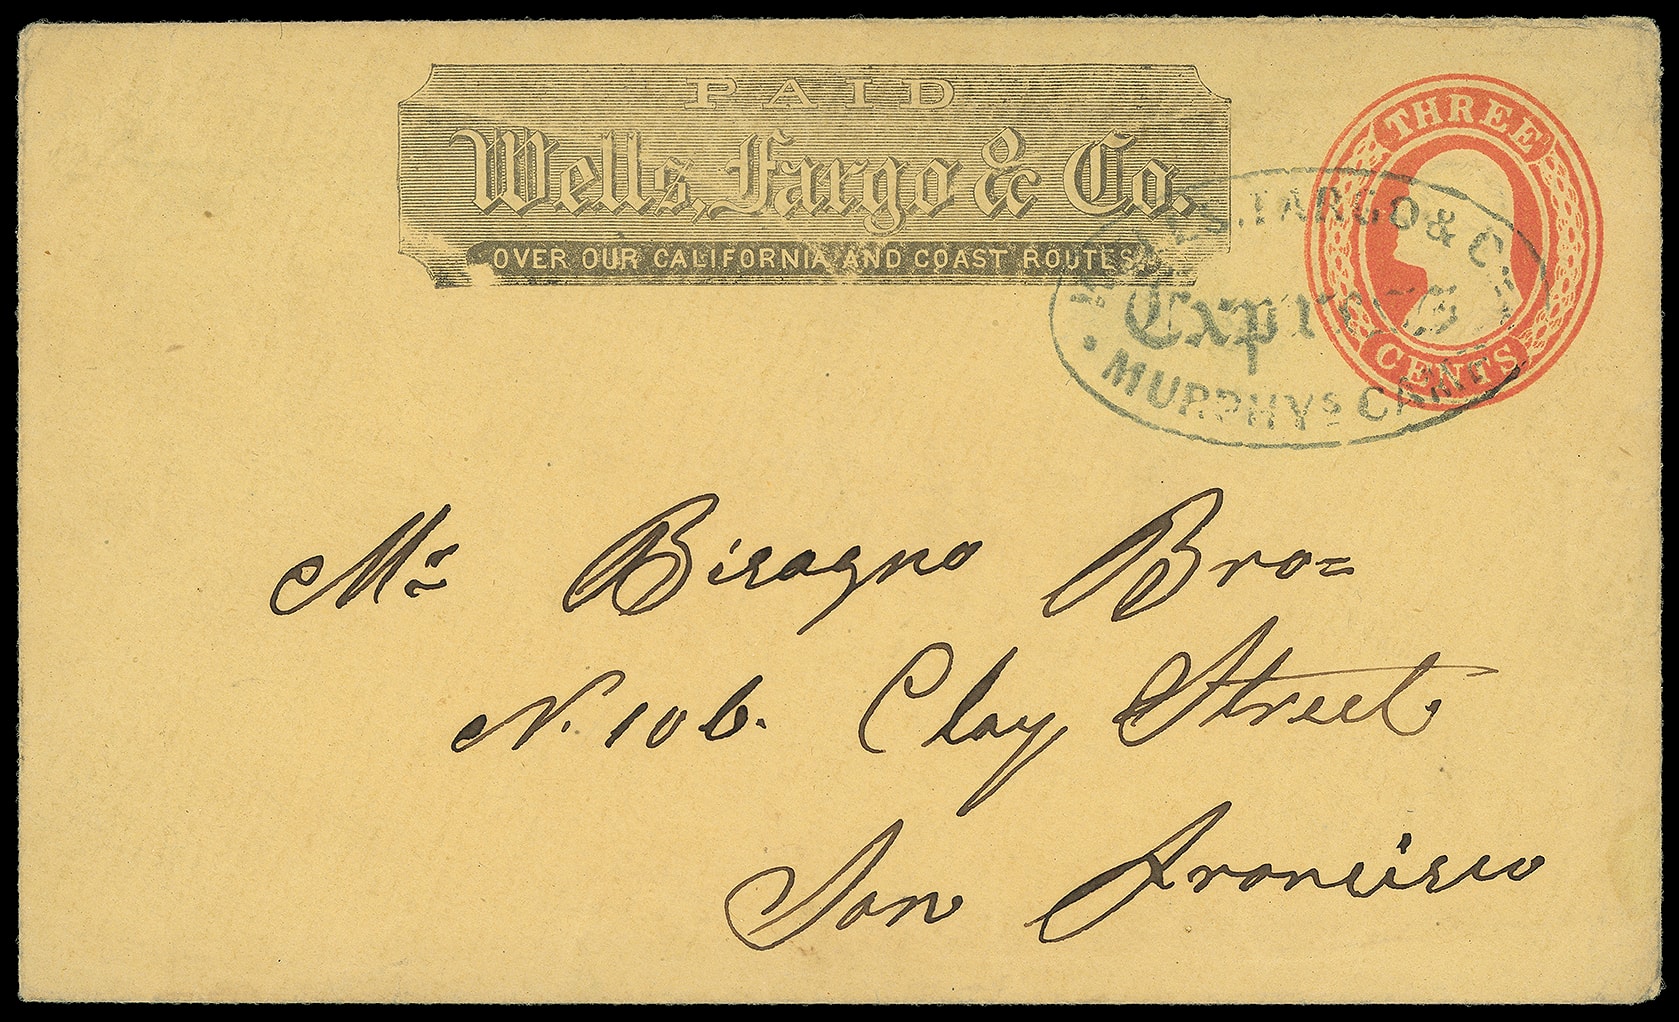 PAID
Wells, Fargo & Co.
OVER OUR CALIFORNIA AND COAST ROUTES.
THREE
CENTS
WELLS, FARGO & CO.
Express
MURPHYS CAMP
Mr Bisagno Bro=
N. 106. Clay Street
San Francisco